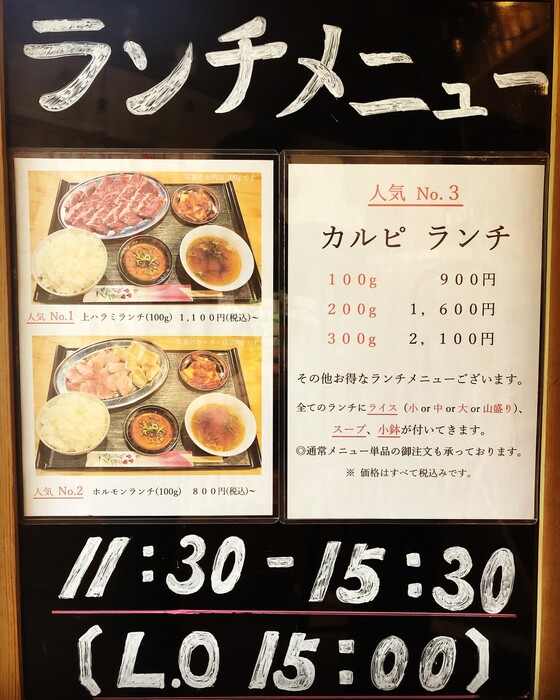 ランチメニュー
写真のお肉は200gです
人気 No.1 上ハラミランチ(100g) 1,100円(税込)~
人気 No.2 ホルモンランチ(100g) 800円(税込)~
人気 No.3
カルビ ランチ
100g 900円
200g 1,600円
300g 2,100円
その他お得なランチメニューございます。
全てのランチにライス（小 or 中 or 大 or 山盛り）、
スープ、小鉢が付いてきます。
◎通常メニュー単品の御注文も承っております。
※ 価格はすべて税込みです。
11:30-15:30
(L.O 15:00)